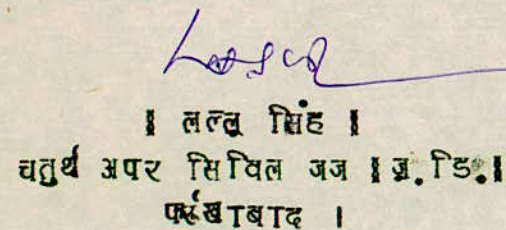 । लल्लू सिंह ।
चतुर्थ अपर सिविल जज । जू. डि. ।
फर्रूखाबाद ।